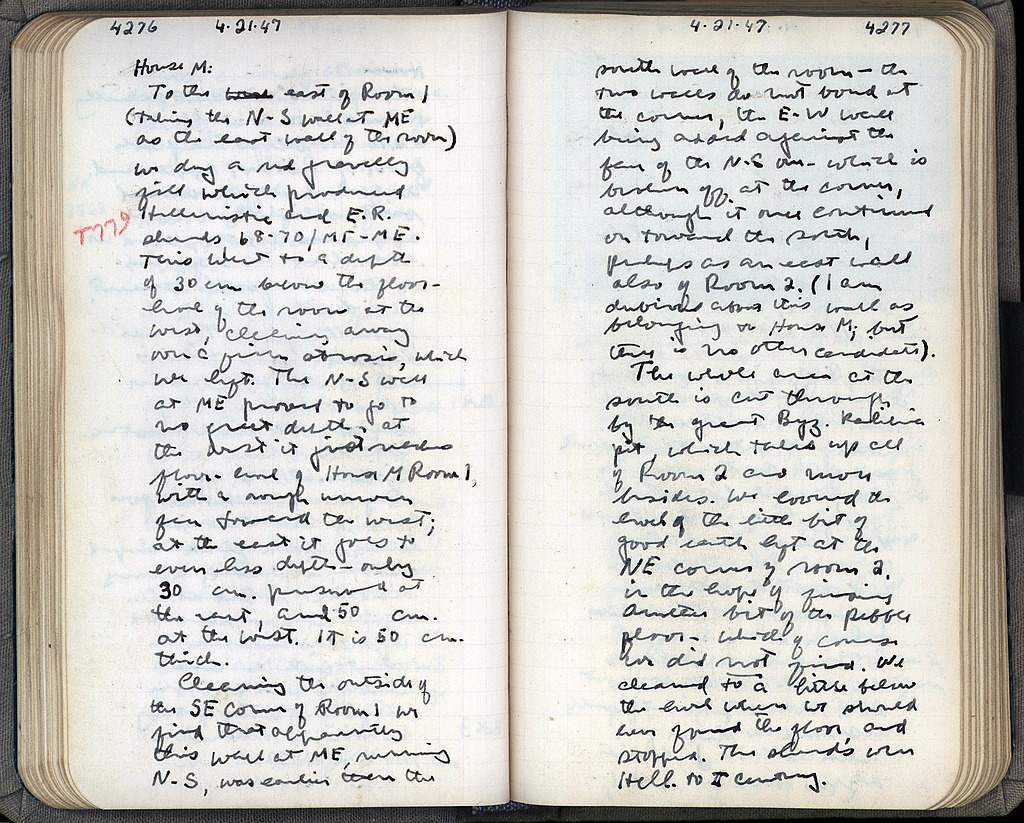 4276 4.21.47
House M:
To the east of Room 1
(taking the N-S wall at ME
as the east wall of the room)
we dug a red gravelly
fill which produced
Hellenistic and E.R.
T779
sherds 68-70/MΓ-ME.
This went to a depth
of 30 cm below the floor-
level of the room at the
west, cleaning away
over a firm stosis, which
we left. The N-S wall
at ME proved to go to
no great depth; at
the west it just reaches
floor-level of House M Room 1,
with a rough uneven
face toward the west;
at the east it goes to
even less depth - only
30 cm. preserved at
the east, and 50 cm.
at the west. It is 50 cm.
thick.
Cleaning the outside of
the SE corner of Room 1 we
find that apparently
this wall at ME, running
N-S, was earlier than the
4.21.47 4277
south wall of the room - the
two walls do not bond at
the corner, the E-W wall
being added against the
face of the N-S one - which is
broken off at the corner,
although it once continued
on toward the south,
perhaps as an east wall
also of Room 2. (I am
dubious about this wall as
belonging to House M; but
there is no other candidate).
The whole area at the
south is cut through
by the great Byz.
pit, which takes up all
of Room 2 and more
besides. We lowered the
level of the little bit of
good earth left at the
NE corner of room 2,
in the hope of finding
another bit of the pebble
floor - which of course
we did not find. We
cleaned to a little below
the level where we should
have found the floor, and
stopped. The sherds were
Hell. to I century.